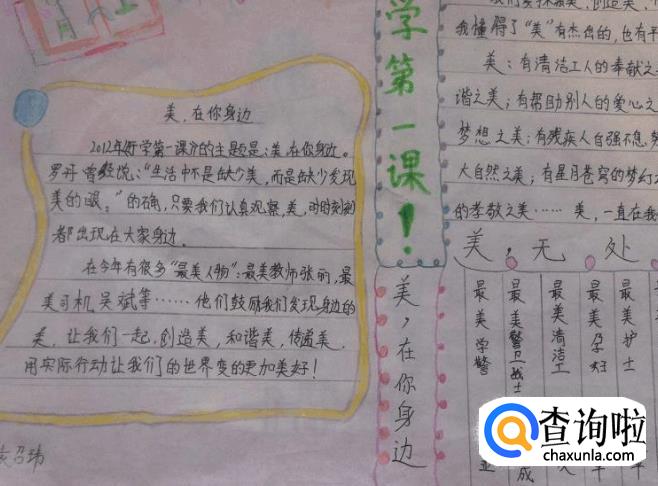 美，在你身边
2012年开学第一课的主题是：美在你身边。
罗丹曾经说：“生活中不是缺少美，而是缺少发现
美的眼。”的确，只要我们认真观察，美，时时刻刻
都出现在大家身边。
在今年有很多“最美人物”：最美教师张丽，最
美司机吴斌等……他们鼓励我们发现身边的
美，让我们一起，创造美，和谐美，传递美，
用实际行动让我们的世界变的更加美好！
学第一课！
美，在你身边
我懂得了“美”有杰出的，也有平
美：有清洁工人的奉献之
谐之美；有帮助别人的爱心之
梦想之美；有残疾人自强不息
大自然之美；有星月苍穹的梦幻
的孝敬之美……美，一直在我
美，无处
最美学警
最美警卫战士
最美清洁工
最美孕妇
最美护士
查询啦
chaxunla.com